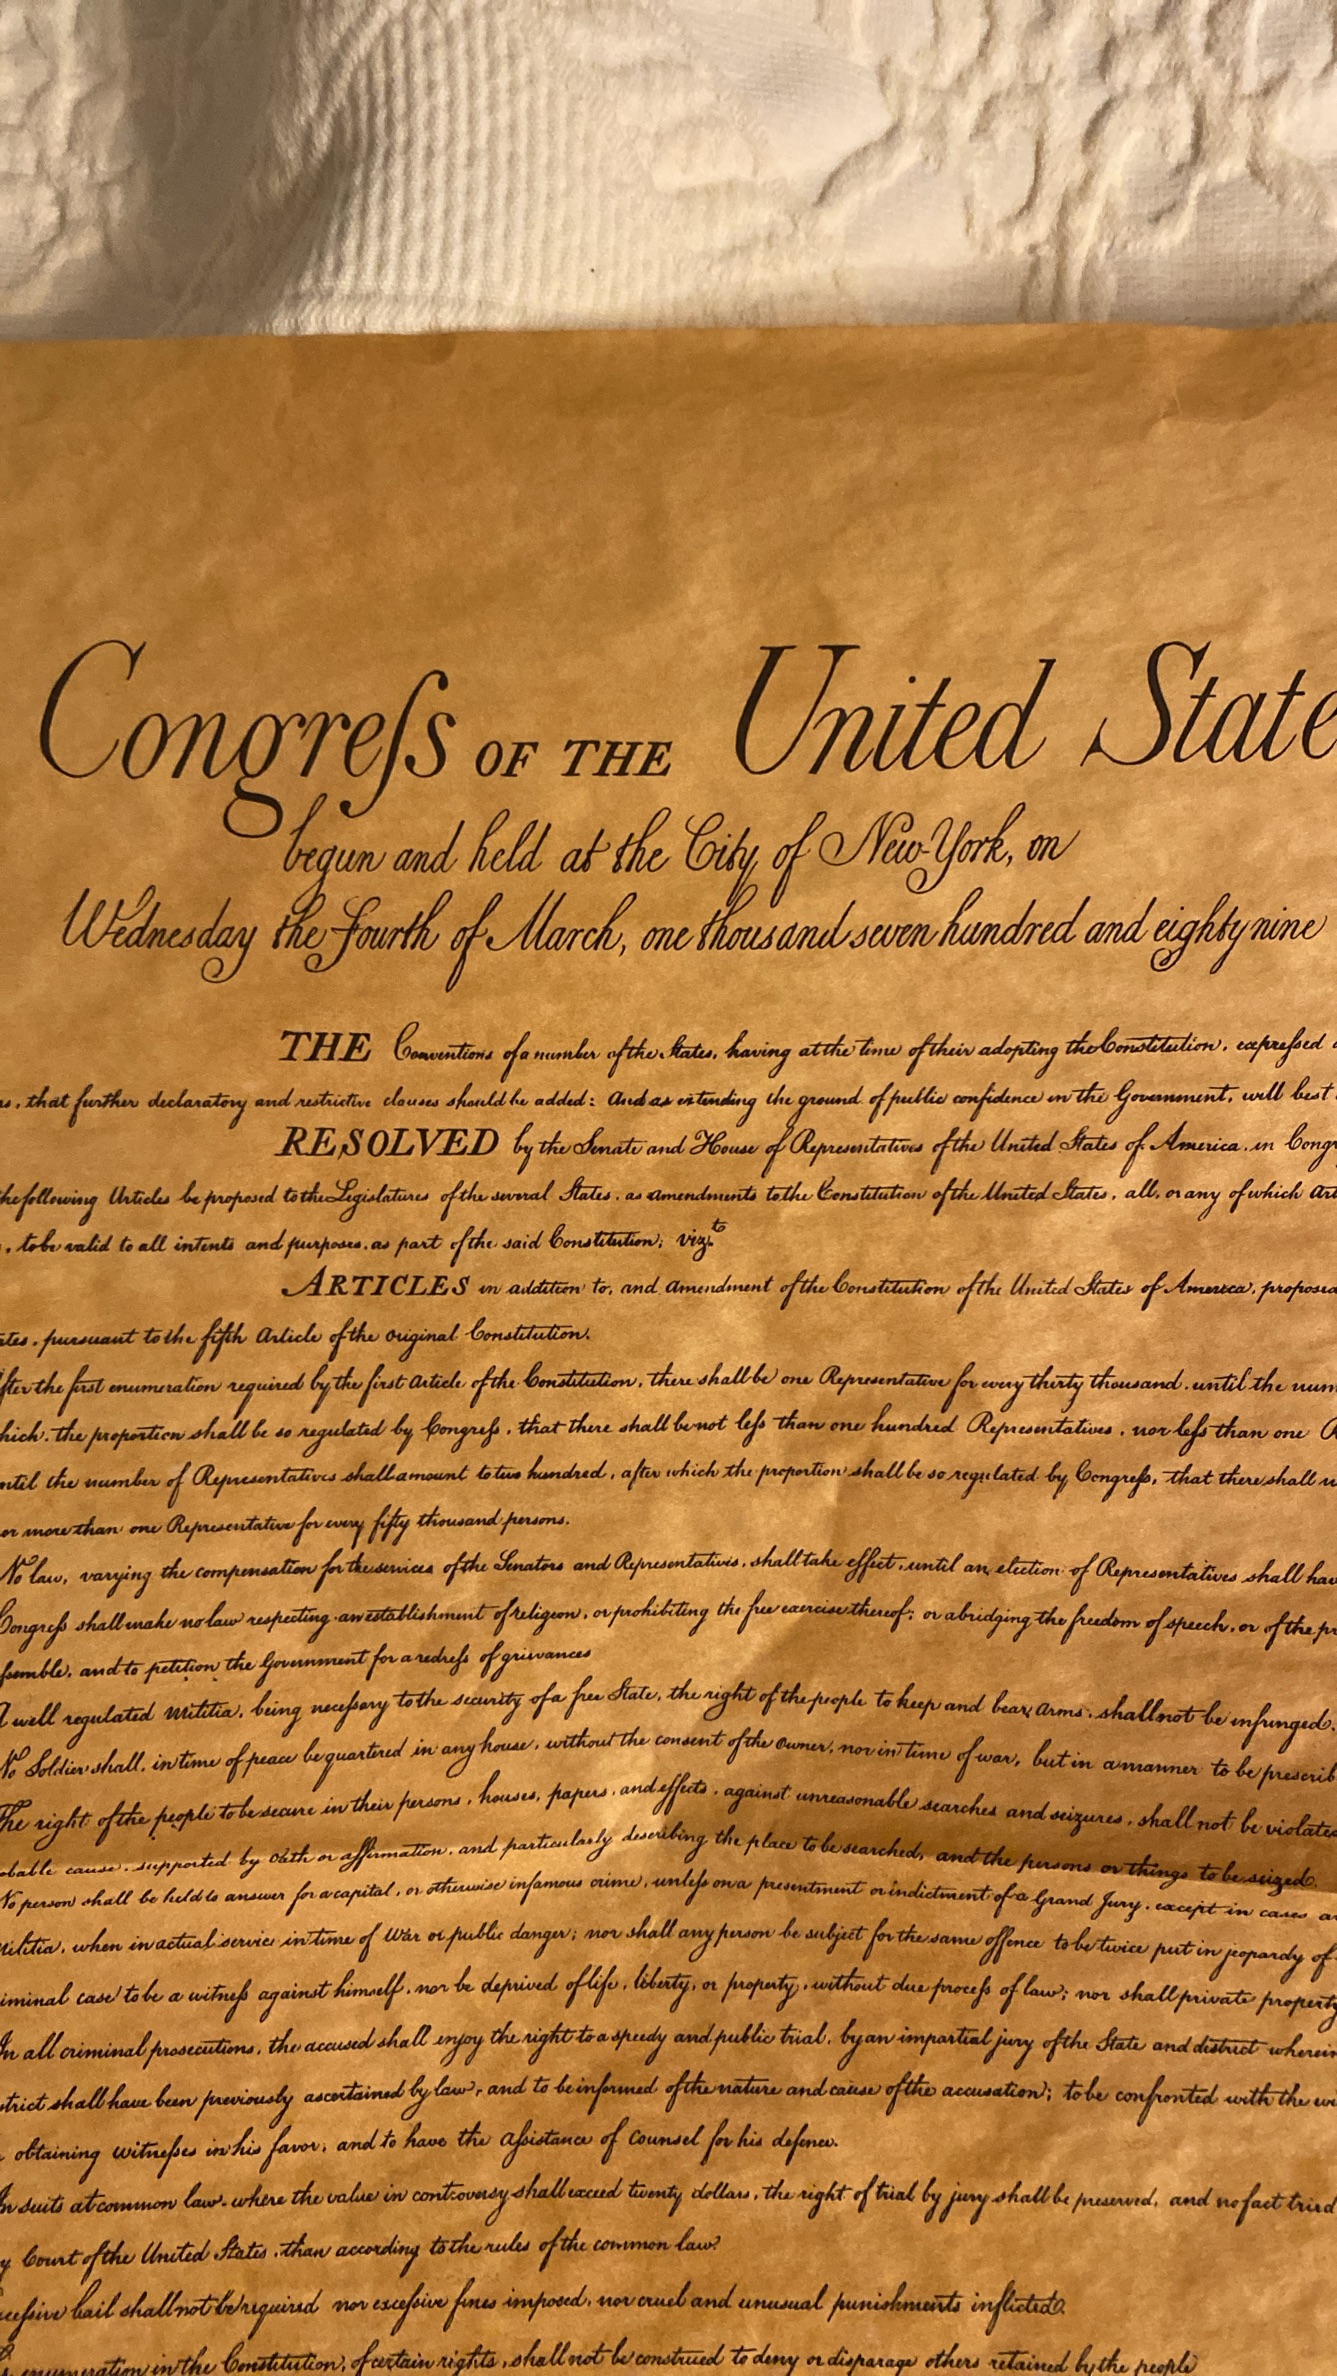 Congreſs OF THE United State
begun and held at the City of New-York, on
Wednesday the fourth of March, one thousand seven hundred and eighty nine
THE Conventions of a number of the States, having at the time of their adopting the Constitution, expreſsed
that further declaratory and restrictive clauses should be added: And as extending the ground of public confidence in the Government, will best
RESOLVED by the Senate and House of Representatives of the United States of America, in Congr
the following Articles be proposed to the Legislatures of the several States, as amendments to the Constitution of the United States, all, or any of which Art
, to be valid to all intents and purposes, as part of the said Constitution; vizt.
ARTICLES in addition to, and amendment of the Constitution of the United States of America, propose
tes, pursuant to the fifth Article of the original Constitution.
fter the first enumeration required by the first Article of the Constitution, there shall be one Representative for every thirty thousand, until the num
hich, the proportion shall be so regulated by Congreſs, that there shall be not leſs than one hundred Representatives, nor leſs than one R
ntil the number of Representatives shall amount to two hundred, after which the proportion shall be so regulated by Congreſs, that there shall n
or more than one Representative for every fifty thousand persons.
No law, varying the compensation for the services of the Senators and Representatives, shall take effect, until an election of Representatives shall hav
Congreſs shall make no law respecting an establishment of religion, or prohibiting the free exercise thereof; or abridging the freedom of speech, or of the pr
ſsemble, and to petition the Government for a redreſs of grievances
A well regulated Militia, being neceſsary to the security of a free State, the right of the people to keep and bear Arms, shall not be infringed.
No Soldier shall, in time of peace be quartered in any house, without the consent of the Owner, nor in time of war, but in a manner to be prescrib
The right of the people to be secure in their persons, houses, papers, and effects, against unreasonable searches and seizures, shall not be violate
obable cause, supported by Oath or affirmation, and particularly describing the place to be searched, and the persons or things to be seized.
No person shall be held to answer for a capital, or otherwise infamous crime, unleſs on a presentment or indictment of a Grand Jury, except in cases a
ilitia, when in actual service in time of War or public danger; nor shall any person be subject for the same offence to be twice put in jeopardy of
iminal case to be a witneſs against himself, nor be deprived of life, liberty, or property, without due proceſs of law; nor shall private property
In all criminal prosecutions, the accused shall enjoy the right to a speedy and public trial, by an impartial jury of the State and district wherein
strict shall have been previously ascertained by law, and to be informed of the nature and cause of the accusation; to be confronted with the wi
obtaining witneſses in his favor, and to have the aſsistance of counsel for his defence.
In suits at common law, where the value in controversy shall exceed twenty dollars, the right of trial by jury shall be preserved, and no fact tried
y Court of the United States, than according to the rules of the common law.
ceſsive bail shall not be required nor exceſsive fines imposed, nor cruel and unusual punishments inflicted.
enumeration in the Constitution, of certain rights, shall not be construed to deny or disparage others retained by the people